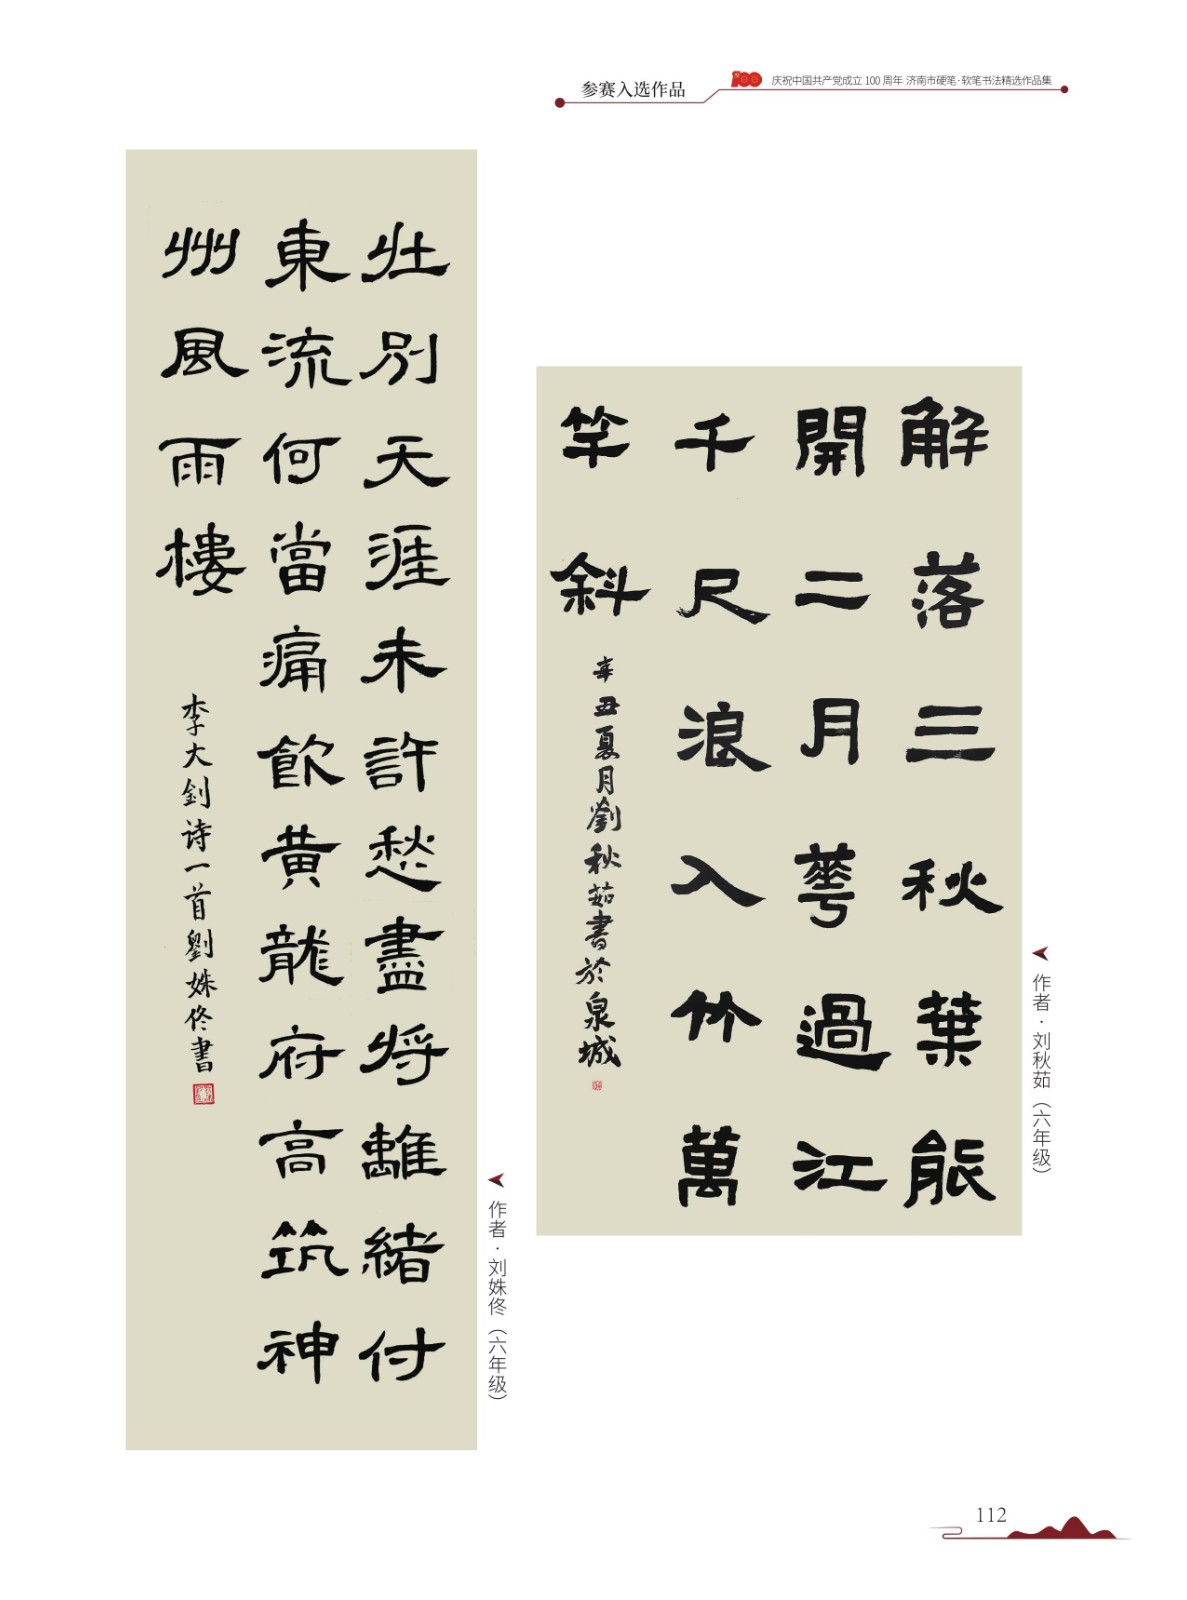 参赛入选作品
100 庆祝中国共产党成立 100 周年 济南市硬笔·软笔书法精选作品集
壮别天涯未許愁盡將離緒付
東流何當痛飲黄龍府高筑神
州風雨樓
李大釗诗一首劉姝佟書
作者·刘姝佟（六年级）
解落三秋葉能
開二月萼過江
千尺浪入竹萬
竿斜
辛丑夏月劉秋茹書於泉城
作者·刘秋茹（六年级）
112